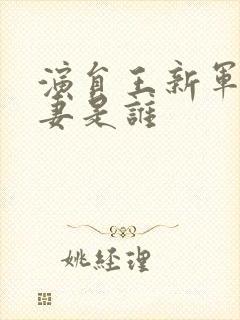 演員王新軍
妻是誰
姚經理